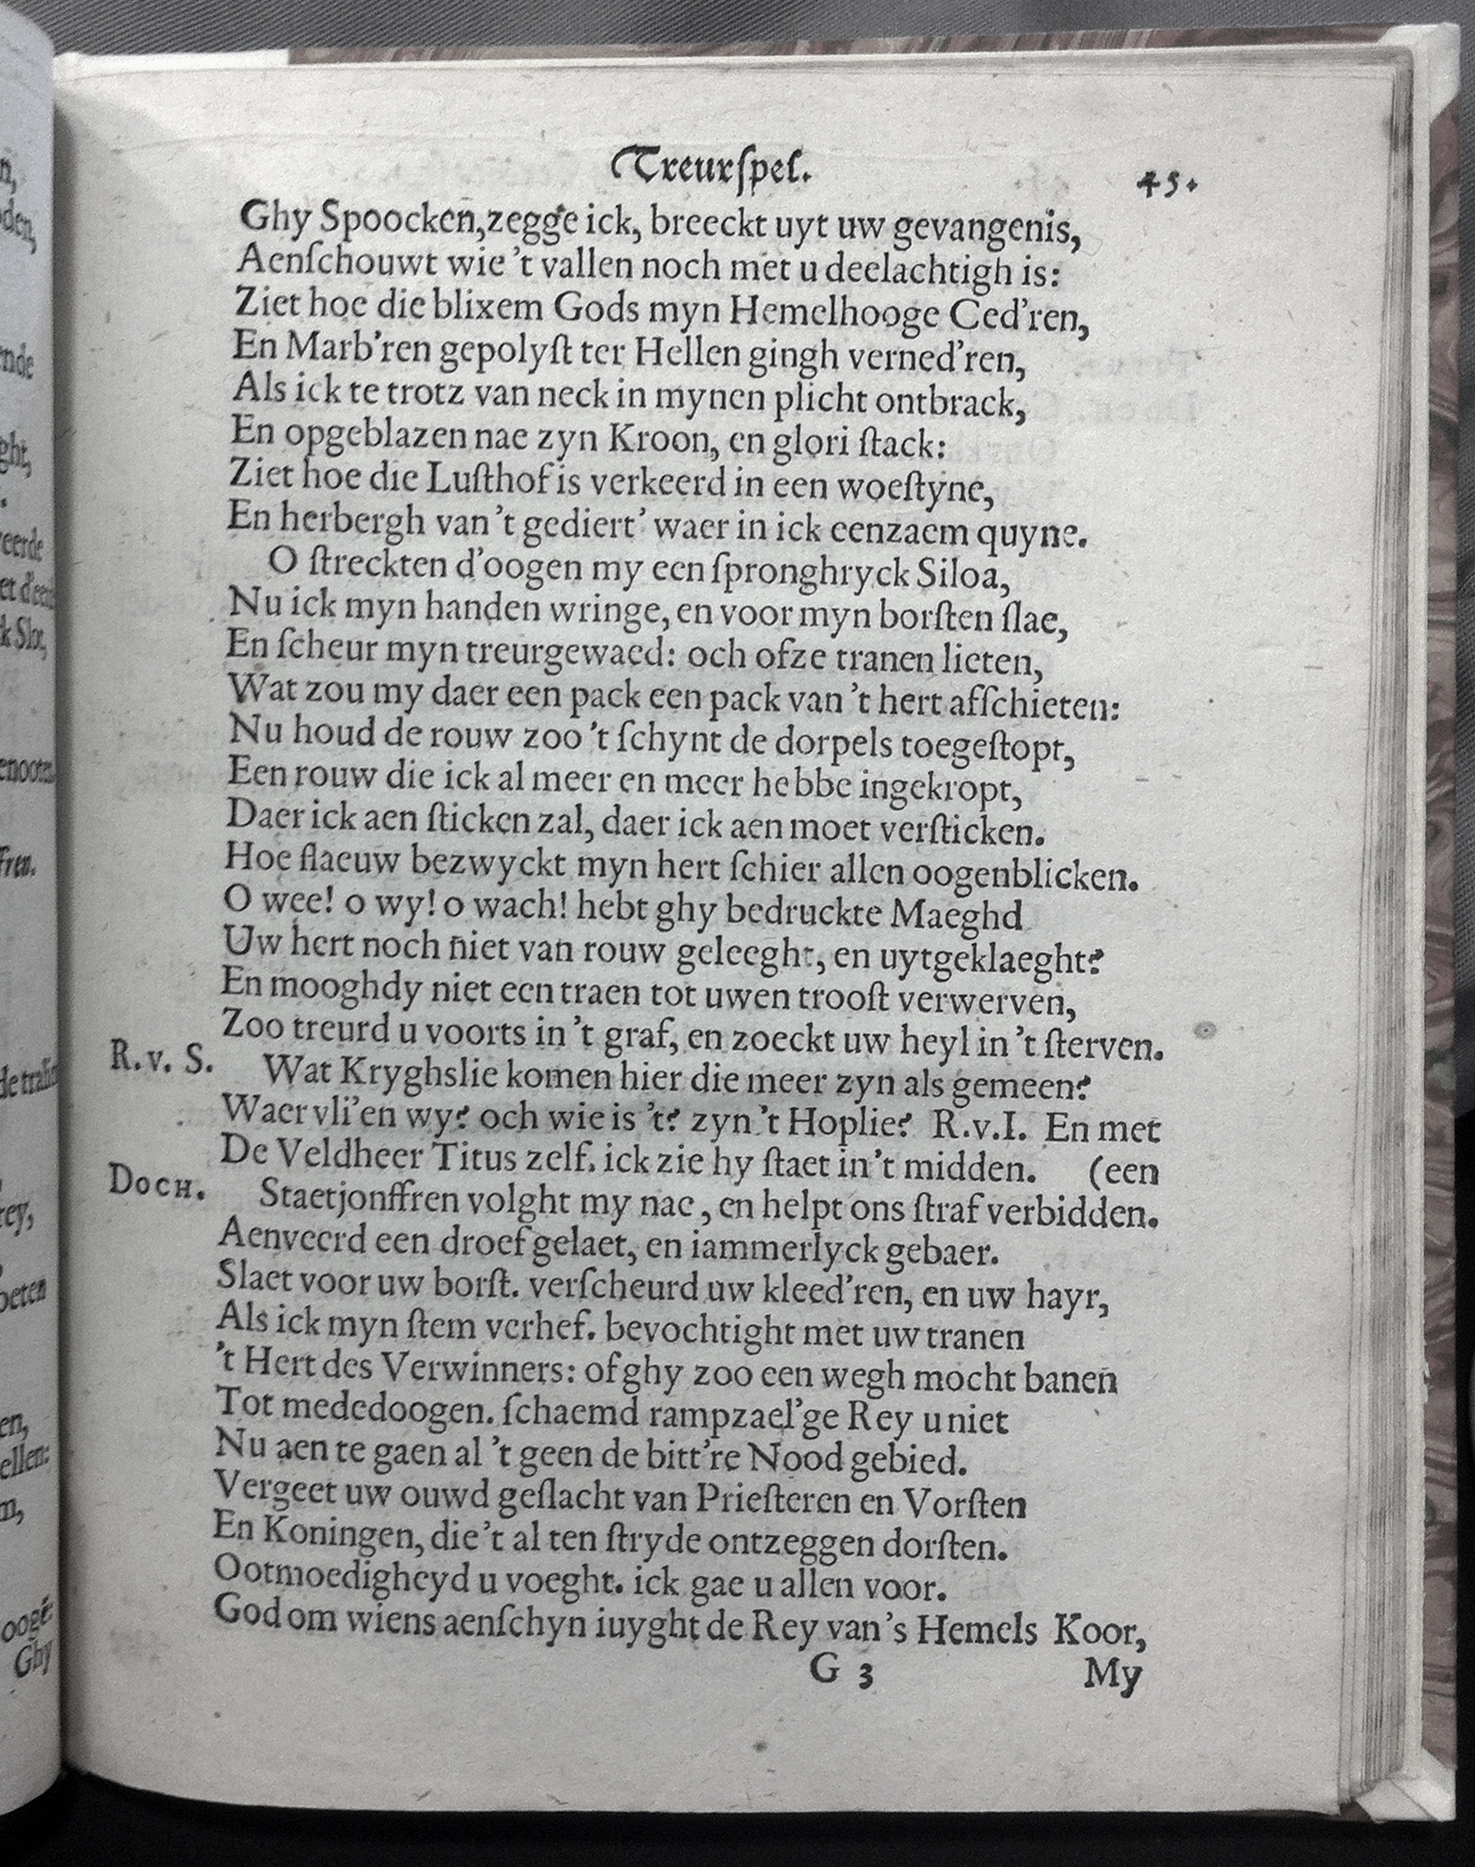 Treurſpel. 45.
Ghy Spoocken, zegge ick, breeckt uyt uw gevangenis,
Aenſchouwt wie 't vallen noch met u deelachtigh is:
Ziet hoe die blixem Gods myn Hemelhooge Ced'ren,
En Marb'ren gepolyſt ter Hellen gingh verned'ren,
Als ick te trotz van neck in mynen plicht ontbrack,
En opgeblazen nae zyn Kroon, en glori ſtack:
Ziet hoe die Luſthof is verkeerd in een woeſtyne,
En herbergh van 't gediert' waer in ick eenzaem quyne.
O ſtreckten d'oogen my een ſpronghryck Siloa,
Nu ick myn handen wringe, en voor myn borſten ſlae,
En ſcheur myn treurgewaed: och ofze tranen lieten,
Wat zou my daer een pack een pack van 't hert afſchieten:
Nu houd de rouw zoo 't ſchynt de dorpels toegeſtopt,
Een rouw die ick al meer en meer hebbe ingekropt,
Daer ick aen ſticken zal, daer ick aen moet verſticken.
Hoe flaeuw bezwyckt myn hert ſchier allen oogenblicken.
O wee! o wy! o wach! hebt ghy bedruckte Maeghd
Uw hert noch niet van rouw geleeght, en uytgeklaeght?
En mooghdy niet een traen tot uwen trooſt verwerven,
Zoo treurd u voorts in 't graf, en zoeckt uw heyl in 't ſterven.
R.v. S. Wat Kryghslie komen hier die meer zyn als gemeen?
Waer vli'en wy? och wie is 't? zyn 't Hoplie? R.v.I. En met
De Veldheer Titus zelf. ick zie hy ſtaet in 't midden. (een
DOCH. Staetjonffren volght my nae, en helpt ons ſtraf verbidden.
Aenveerd een droef gelaet, en iammerlyck gebaer.
Slaet voor uw borſt. verſcheurd uw kleed'ren, en uw hayr,
Als ick myn ſtem verhef. bevochtight met uw tranen
't Hert des Verwinners: of ghy zoo een wegh mocht banen
Tot mededoogen. ſchaemd rampzael'ge Rey u niet
Nu aen te gaen al 't geen de bitt're Nood gebied.
Vergeet uw ouwd geſlacht van Prieſteren en Vorſten
En Koningen, die 't al ten ſtryde ontzeggen dorſten.
Ootmoedigheyd u voeght. ick gae u allen voor.
God om wiens aenſchyn iuyght de Rey van 's Hemels Koor,
G 3 My